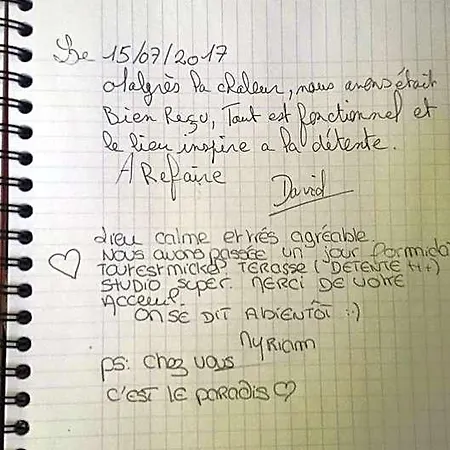 Le 15/07/2017
Malgrès la chaleur, nous avons était
Bien Reçu, Tout est fonctionnel et
le lieu inspire a la détente.
A Refaire
David
Lieu calme et très agréable
Nous avons passée un jour formida
Tout est nickel TERASSE (DETENTE +++)
STUDIO SUPER. MERCI DE VOTRE
Acceuil.
ON SE DIT A BIENTÔT :)
Myriam
ps: chez vous
c'est le paradis ♡